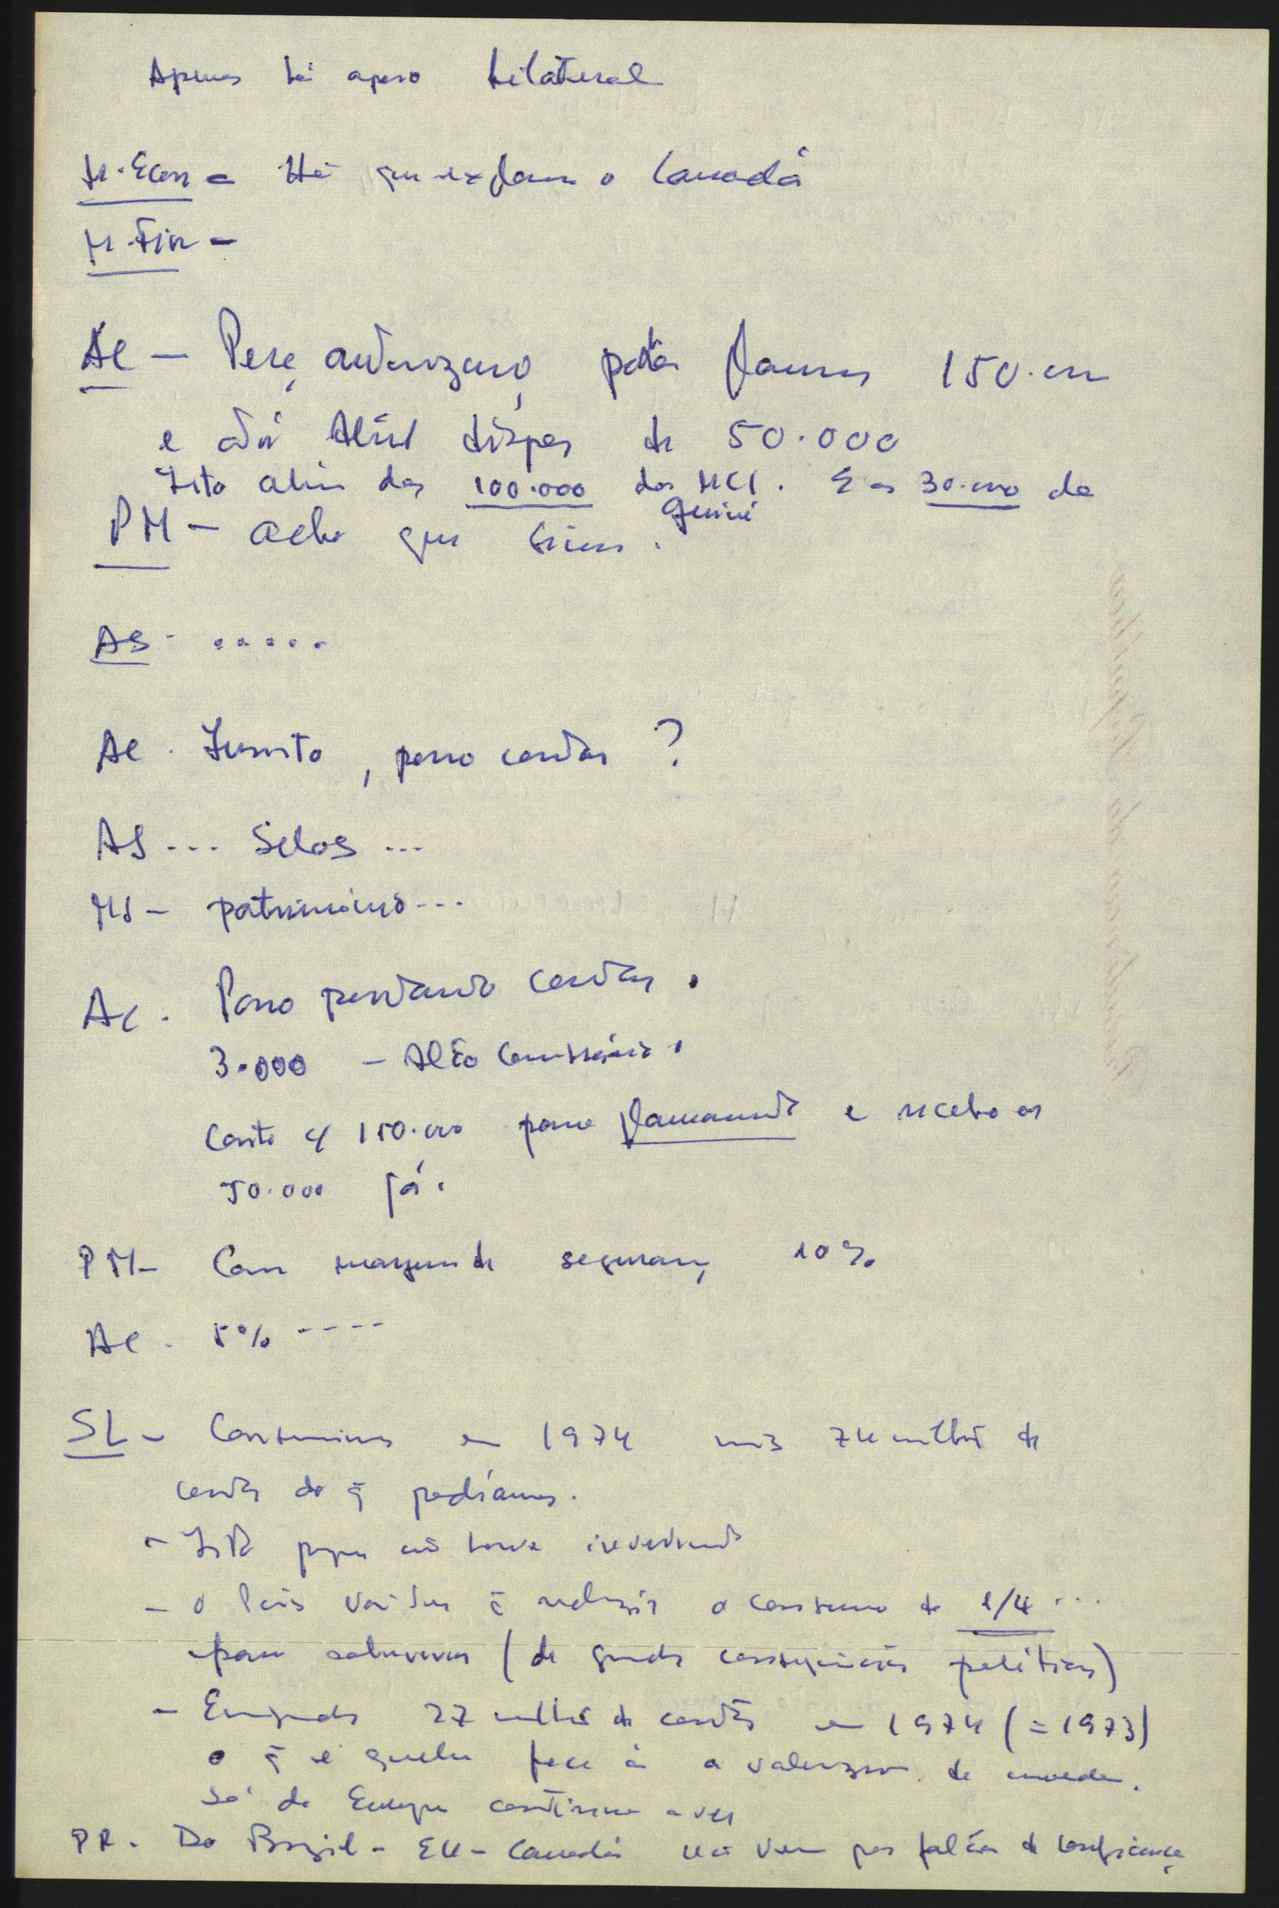 Apenas há apoio bilateral
M. Econ - Há que explorar o Canadá
M. Fin -
AC - Peço autorização para 150.000
e até Abril dispor de 50.000
Isto além dos 100.000 dos MCI. E os 30.000 da
Guiné
PM - acho que sim.
AS - .....
AC. Insisto, posso contar ?
AS ... Selos ...
MS - património ...
AC. Posso portanto contar.
3.000 - Alto Comissário.
Conto c/ 150.000 para e recebo os
50.000 já.
PM - Com margem de segurança 10%
AC. 5% ----
SL - Consumimos em 1974 mais 74 milhões de
contos do q̄ podíamos.
- Isto porque não houve investimento
- o País vai ter q̄ reduzir o consumo de 1/4 ...
para sobreviver (de grandes consequências políticas)
- Emigrantes 27 milhões de contos em 1974 (= 1973)
o q̄ é quebra face à valorização da moeda.
Só da Europa continua a vir
PR. Do Brazil - EU - Canadá não vem por falta de confiança